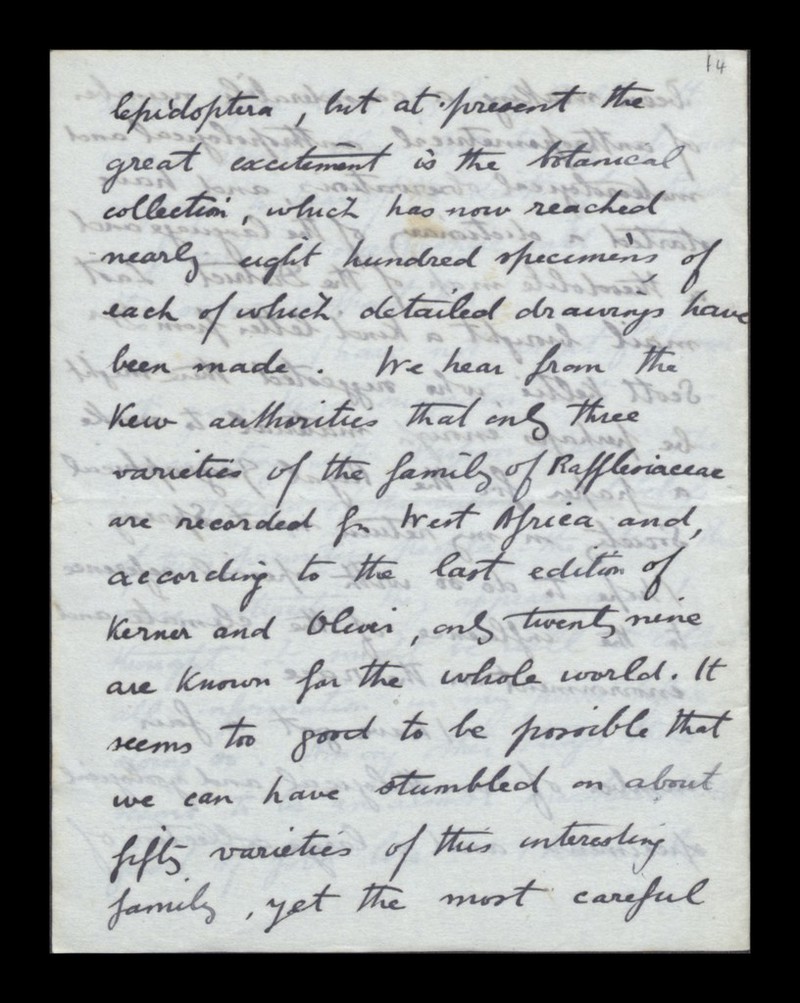 14
lepidoptera, but at present the
great excitement is the botanical
collection, which has now reached
nearly eight hundred specimens of
each of which detailed drawings have
been made. We hear from the
Kew authorities that only three
varieties of the family of Rafflesiaceae
are recorded for West Africa and,
according to the last edition of
Kerner and Oliver, only twenty nine
are known for the whole world. It
seems too good to be possible that
we can have stumbled on about
fifty varieties of this interesting
family, yet the most careful